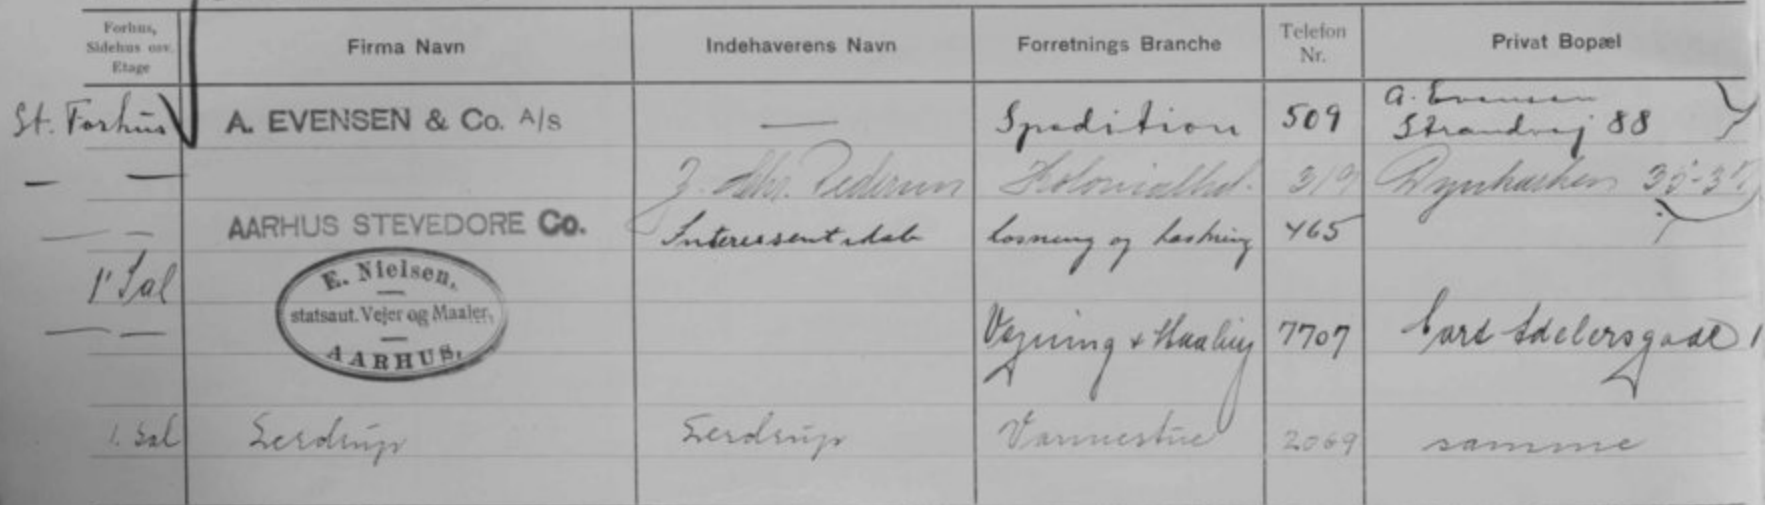 Forhus, Sidehus osv. Etage Firma Navn Indehaverens Navn Forretnings Branche Telefon Nr. Privat Bopæl
St. Forhus A. EVENSEN & Co. A/S — Spedition 509 A. Evensen
Strandvej 88
— — J. Chr. Pedersen Kolonialhdl. 319 Dynkarken 35-37
— — AARHUS STEVEDORE Co. Interessentskab losning og lastning 465
1' Sal E. Nielsen,
statsaut. Vejer og Maaler,
— — AARHUS. Vejning & Maaling 7707 Cort Adelersgade 1
1. Sal Lerdrup Lerdrup Varmestue 2069 samme